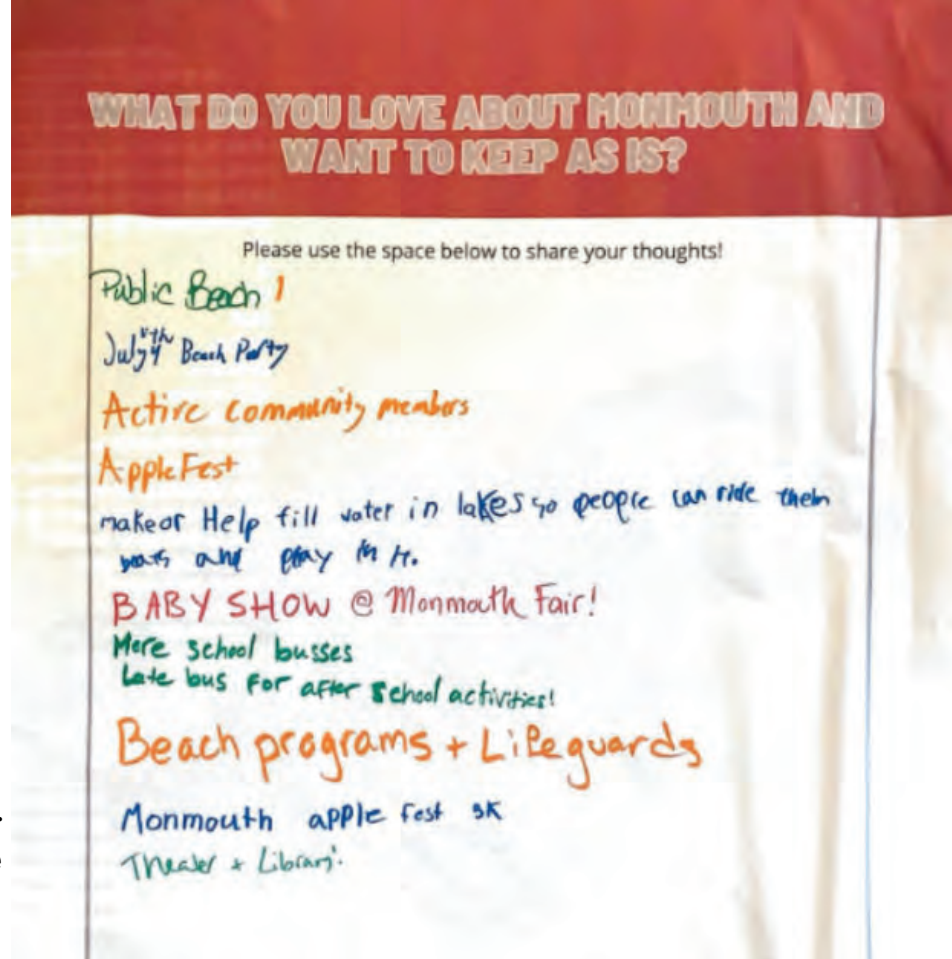 WHAT DO YOU LOVE ABOUT MONMOUTH AND
WANT TO KEEP AS IS?
Please use the space below to share your thoughts!
Public Beach 1
July 4th Beach Party
Active community members
AppleFest
make or Help fill water in lakes so people can ride them
and play in it.
BABY SHOW @ Monmouth Fair!
More school busses
Late bus for after school activities!
Beach programs + Lifeguards
Monmouth apple fest 5K
Theater + Library